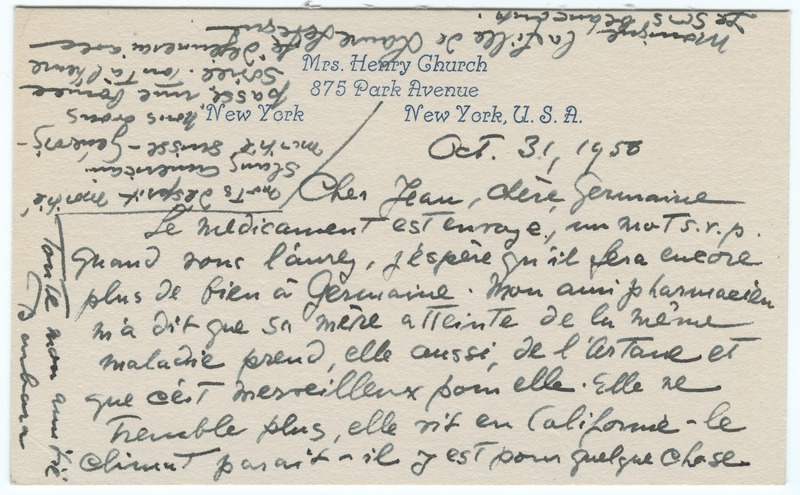 Mrs. Henry Church
875 Park Avenue
New York
New York, U. S. A.
Oct. 31, 1950
Cher Jean, chère Germaine
Le médicament est envoyé, un mot s.v.p.
quand vous l'aurez, j'espère qu'il fera encore
plus de bien à Germaine. Mon ami pharmacien
m'a dit que sa mère atteinte de la même
maladie prend, elle aussi, de l'Artane et
que c'est merveilleux pour elle. Elle ne
tremble plus, elle vit en Californie - le
climat parait-il y est pour quelque chose.
mots d'esprit moitié
slang américain
moitié suisse - 
nous avons
passé une bonne
soirée.
Monique la fille de
Toute mon amitié
Barbara